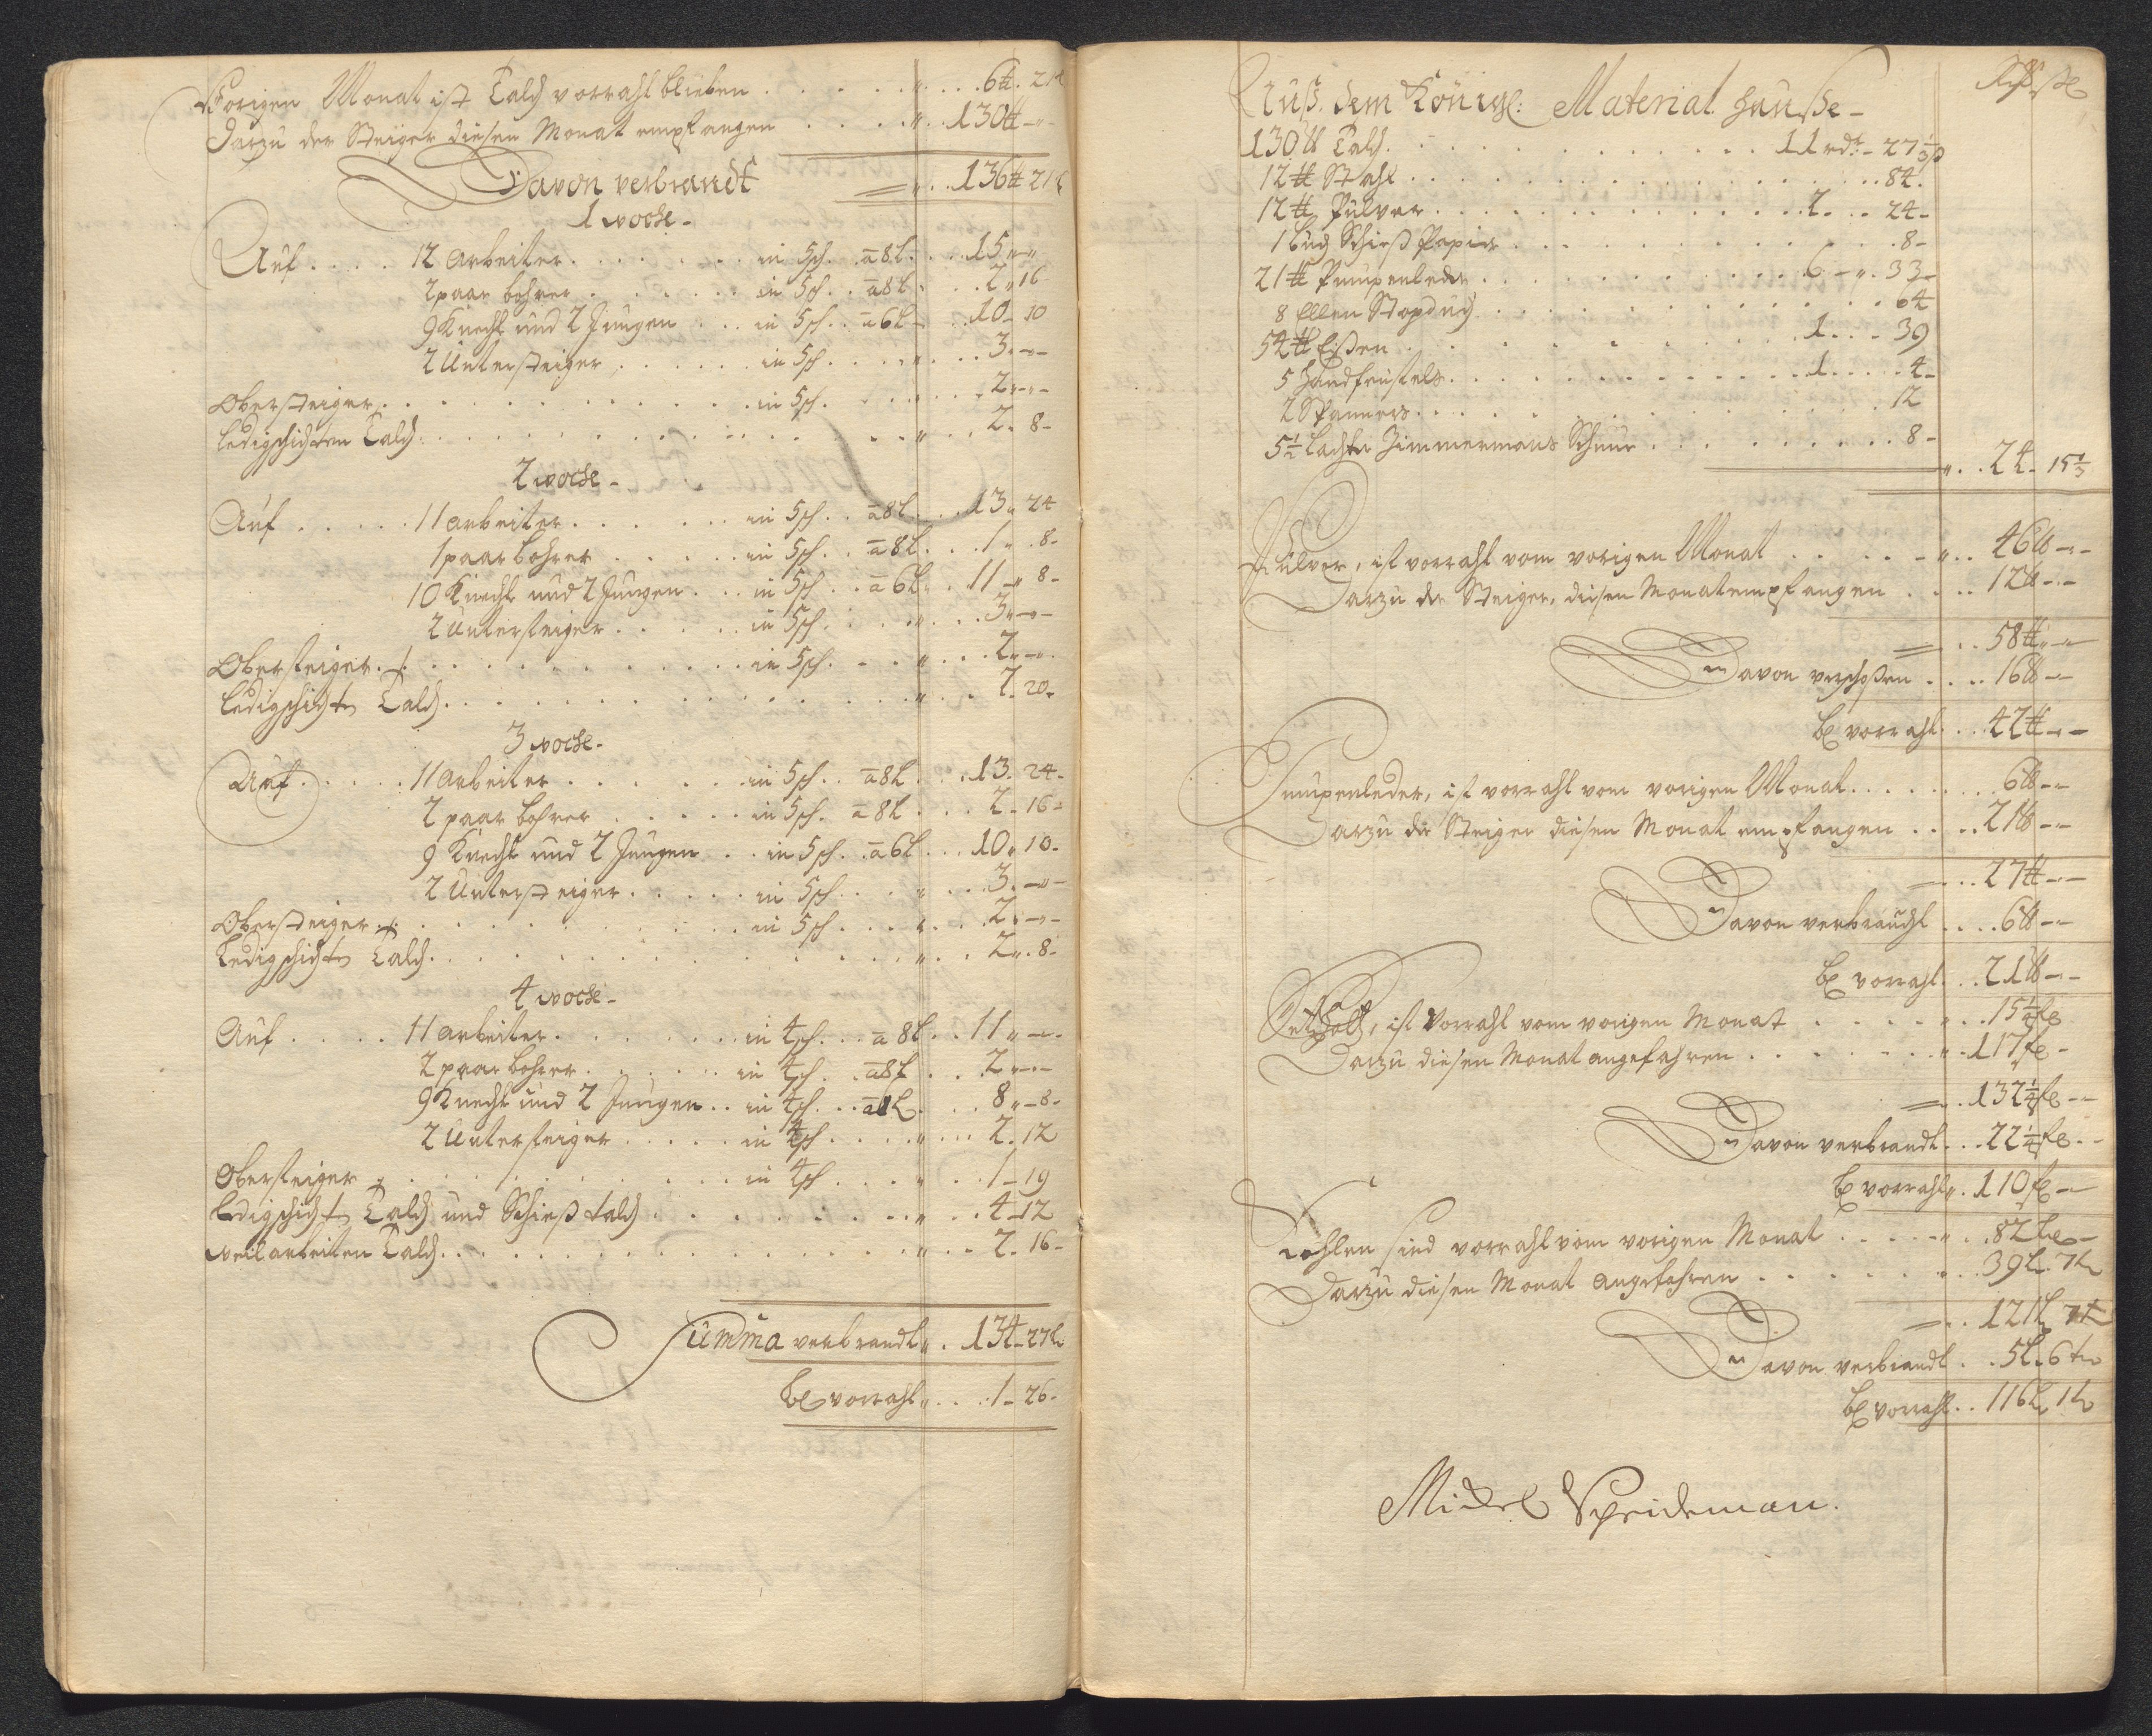 Vorigen Monat ist Talch vorraht blieben . . . . . " . . . 6 ℔. 21 l
Darzu der Steiger diesen Monat empfangen . . . . " . . 130 ℔ - " -
Davon verbrandt = " . . 136 ℔ 21 l
1 woche -
Auf . . . . 12 arbeiter . . . . . . . in 5 sch. . . a 8 l. . . 15 " - "
2 paar bohrer . . . . . . in 5 sch. . . a 8 l . . . 2 " 16
9 Knecht und 2 Jungen . . . in 5 sch. . . a 6 l - . . 10 - 10
2 Untersteiger . . . . . . in 5 sch. . . . . " . . . 3. - " -
Obersteiger . . . . . . . . . . . . in 5 sch. . . . . . . 2 " - " -
ledigschichten Talch . . . . . . . . . . . . . . . " . . . 2. 8 -
2 woche -
Auf . . . . . 11 arbeiter . . . . . . in 5 sch. . . a 8 l. . . 13 " 24
1 paar bohrer . . . . . in 5 sch. . . a 8 l. . . 1 " . 8 -
10 Knecht und 2 Jungen . . . in 5 sch. . . a 6 l . . 11 - " 8 -
2 Untersteiger . . . . . in 5 sch. . . . . " . . . 3 " - " -
Obersteiger . . . . . . . . . . . . in 5 sch. . . . " . . . 2 " - " .
ledigschichten Talch . . . . . . . . . . . . . . " . . . 2. 20 -
3 woche -
Auf . . . . . 11 arbeiter . . . . . . in 5 sch. . . a 8 l . . . 13. 24 -
2 paar bohrer . . . . . in 5 sch. a 8 l . . . 2 - 16 -
9 Knecht und 2 Jungen . . in 5 sch. . . a 6 l . . . 10 " 10 -
2 Untersteiger . . . . . in 5 sch . . . " . . . 3. - " -
Obersteiger . . . . . . . . . . . . in 5 sch . . . " . . . 2. - " -
Ledigschichten Talch . . . . . . . . . . . . . . " . . . 2 " . 8 -
4 woche -
Auf . . . . 11 arbeiter . . . . . . . in 4 sch. . . a 8 l . . 11 " - " -
2 paar bohrer . . . . . . in 4 sch. . a 8 l . . . 2 " - " -
9 Knecht und 2 Jungen . . in 4 sch. . . a l . . . 8 " - 8 -
2 Untersteiger . . . . . in 4 sch . . . . " . . . 2. 12
Obersteiger . . . . . . . . . . . . in 4 sch . . . . " . . . 1 - 19
ledigschichten Talch und Schieß talch . . . . . . . . " . . . 4 - 12
weilarbeiten Talch . . . . . . . . . . . . . . . " . . . 2. 16 -
Summa verbrandt " . 134 - 27 l
bl vorraht " . . . 1 - 26 -
Auß dem Königl: Material hauße -
130 ℔ Talch . . . . . . . . . . . . 11 rdr - 27 1/3 ß
12 ℔ Stahl . . . . . . . . . . . . . . . 84.
12 ℔ Pulver . . . . . . . . . . . . . 2 . . . 24 -
1 buch Schieß Papier . . . . . . . . . . . . . 8 -
21 ℔ Pumpenleder . . . . . . . . . . . . 6 - " . 33 -
8 Ellen Stopduch . . . . . . . . . . . . . . 64
54 ℔ Eißen . . . . . . . . . . . . 1 . . . 39
5 Handfeustels . . . . . . . . . . . . 1 . . . . 4 -
2 Spanners . . . . . . . . . . . . . . . 12
5 1/2 Lachter Zimmermans Schnur . . . . . . . . . 8 -
" . . 24 - 15 1/3
Pulver, ist vorraht vom vorigen Monat . . . . . - " . . 46 ℔ - " -
Darzu der Steiger, diesen Monat empfangen . . . . 12 ℔ - " -
= . . 58 ℔ " - "
Davon verschoßen . . . . 16 ℔ - "
bl vorraht . . . 42 ℔ - " -
Pumpenleder, ist vorraht vom vorigen Monat . . . . . . . . 6 ℔ - "
Darzu der Steiger diesen Monat empfangen . . . . 21 ℔ - "
- . . . 27 ℔ - " -
Davon verbraucht . . . . 6 ℔ - "
bl vorraht . . . 21 ℔ - " -
Setzholtz, ist Vorraht vom vorigen Monat . . . . . " . . . 15 1/4 fl
Darzu diesen Monat angefahren . . . . . . . " . . 117 fl -
= . . 132 1/4 fl - "
Davon verbrandt . . . 22 1/4 fl - -
bl vorraht " . 110 fl - "
Kohlen sind vorraht vom vorigen Monat . . . . . - " . . . 82 l -
Darzu diesen Monat angefahren . . . . . . . " . . . 39 l. 7 t
= . . . 121 l 7 t
Davon verbrandt . . . 5 l. 6 t
bl vorraht . . . 116 l 1 t
Michel Speideman.